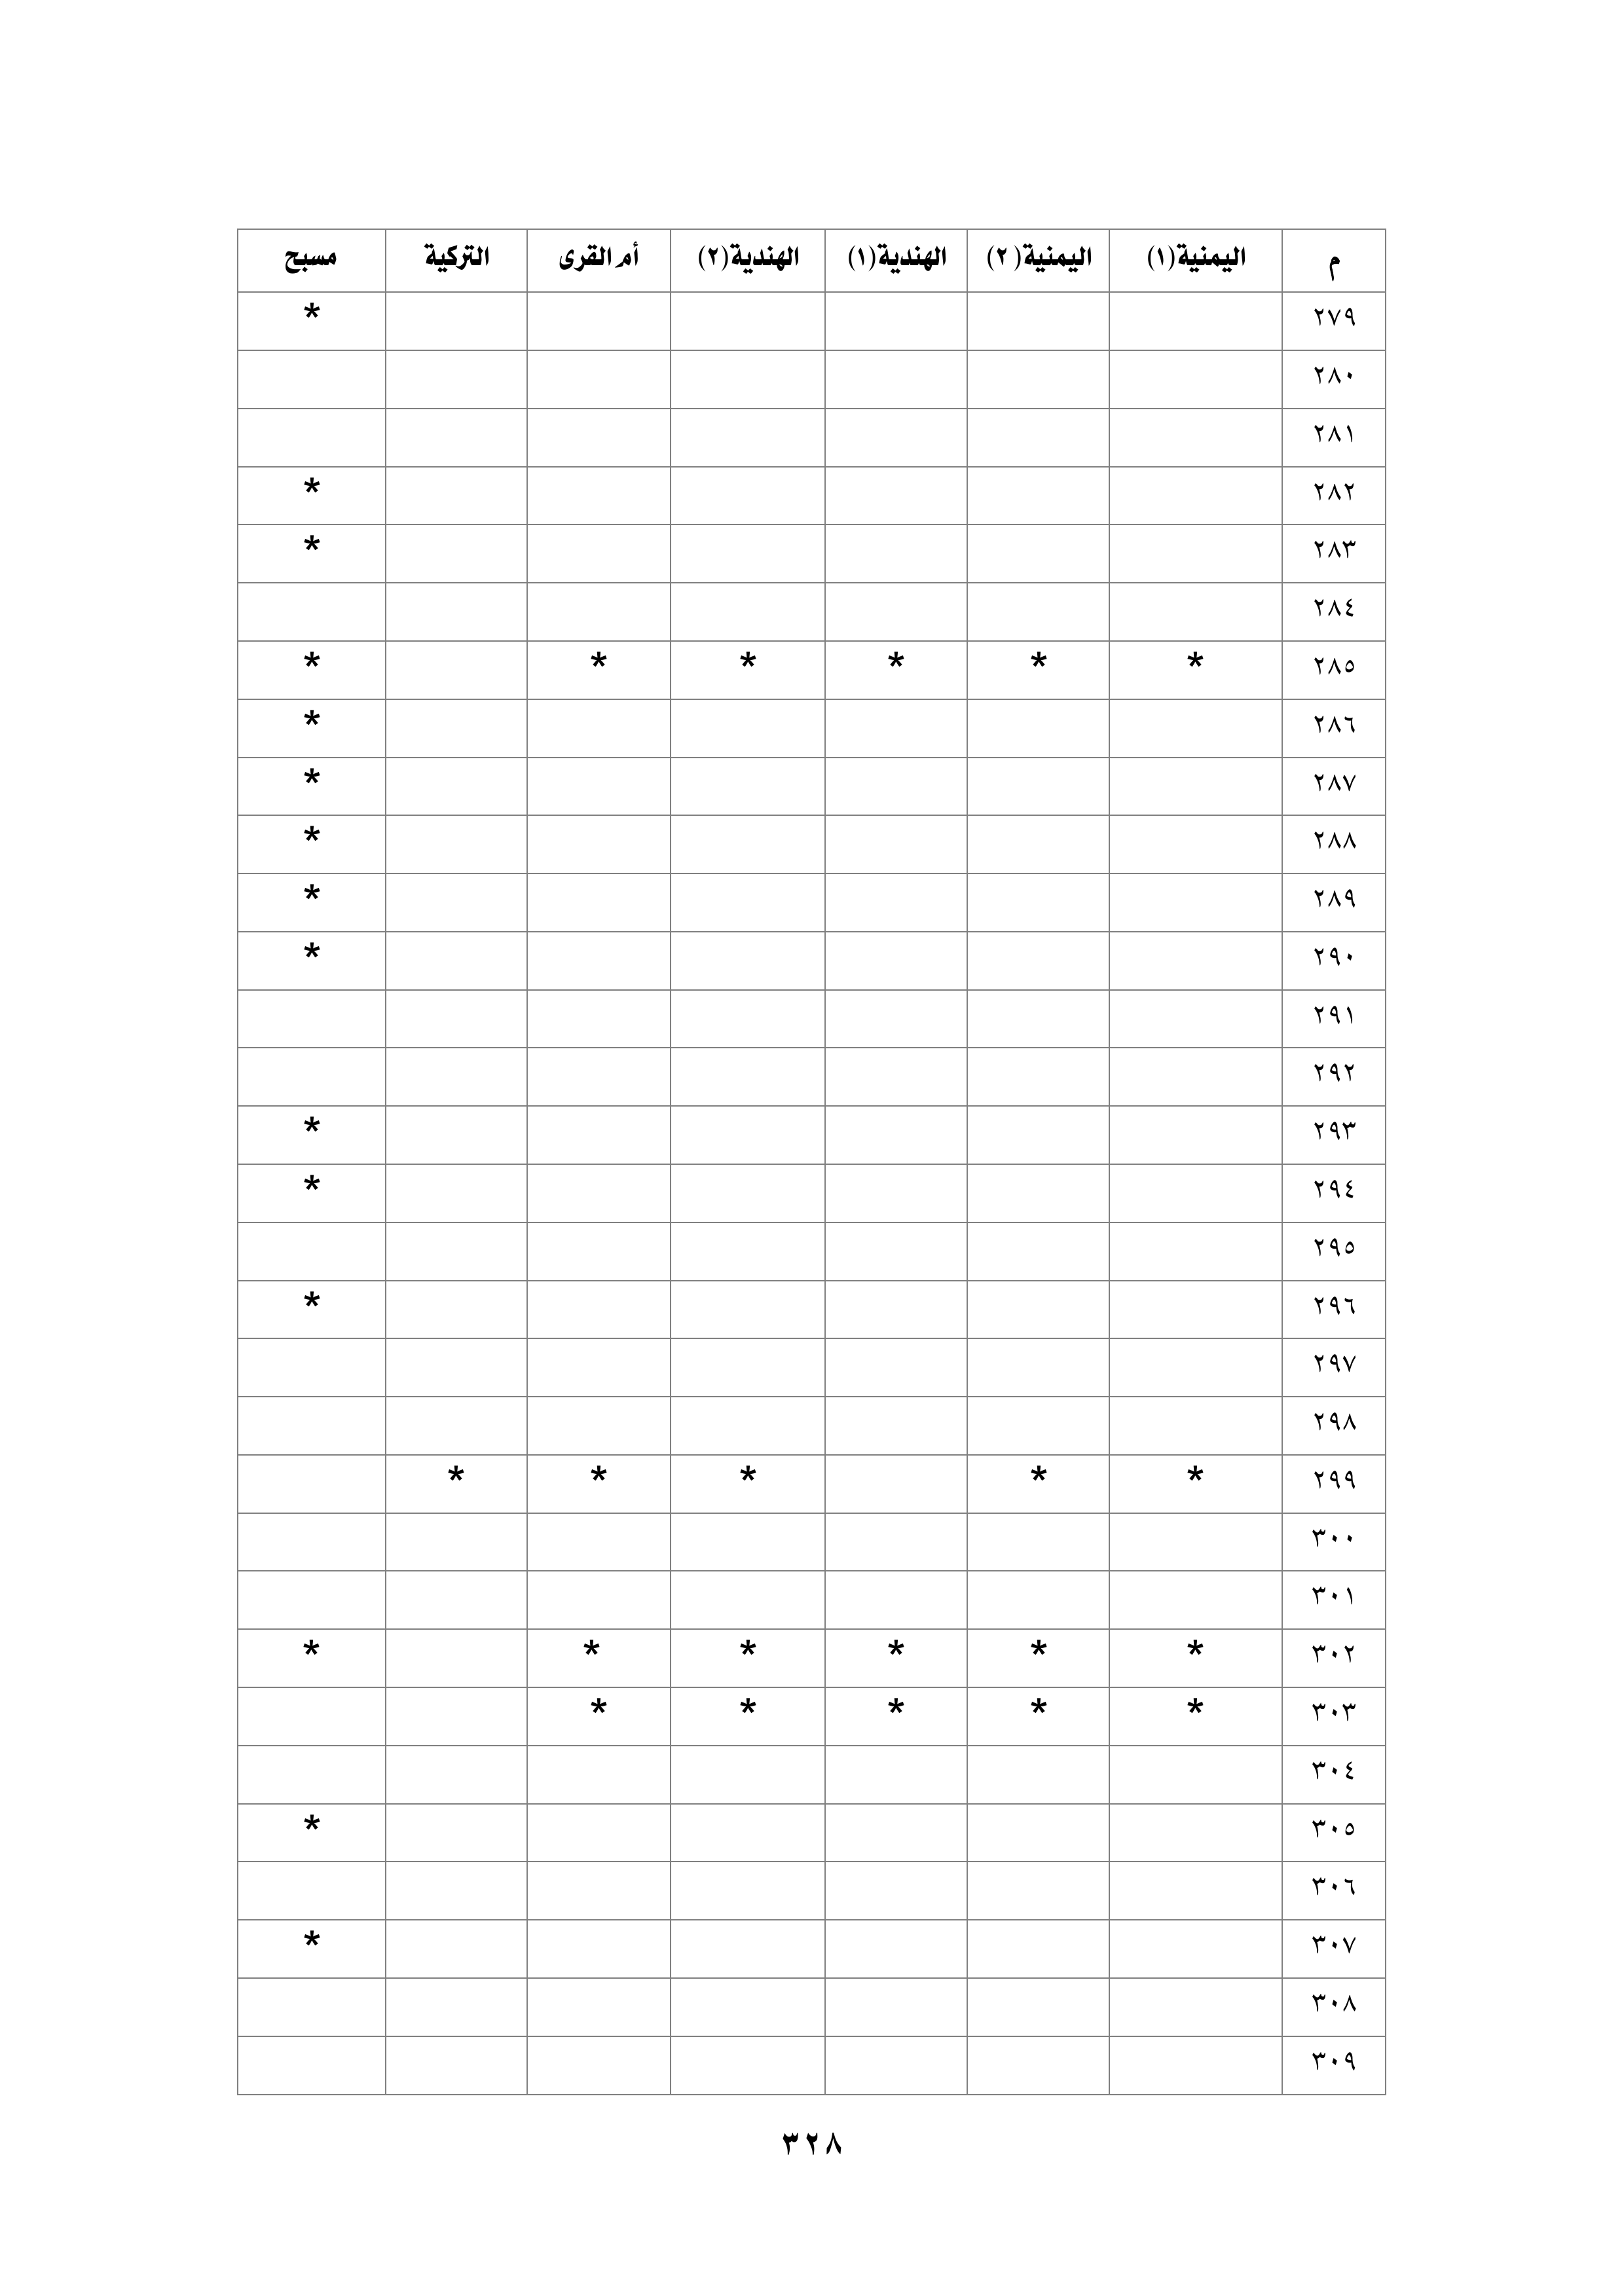 م اليمنية(١) اليمنية( ٢) الهندية(١) الهندية(٢) أم القرى التركية مسبح
٢٧٩ *
٢٨٠
٢٨١
٢٨٢ *
٢٨٣ *
٢٨٤
٢٨٥ * * * * * *
٢٨٦ *
٢٨٧ *
٢٨٨ *
٢٨٩ *
٢٩٠ *
٢٩١
٢٩٢
٢٩٣ *
٢٩٤ *
٢٩٥
٢٩٦ *
٢٩٧
٢٩٨
٢٩٩ * * * * *
٣٠٠
٣٠١
٣٠٢ * * * * * *
٣٠٣ * * * * *
٣٠٤
٣٠٥ *
٣٠٦
٣٠٧ *
٣٠٨
٣٠٩
٣٢٨